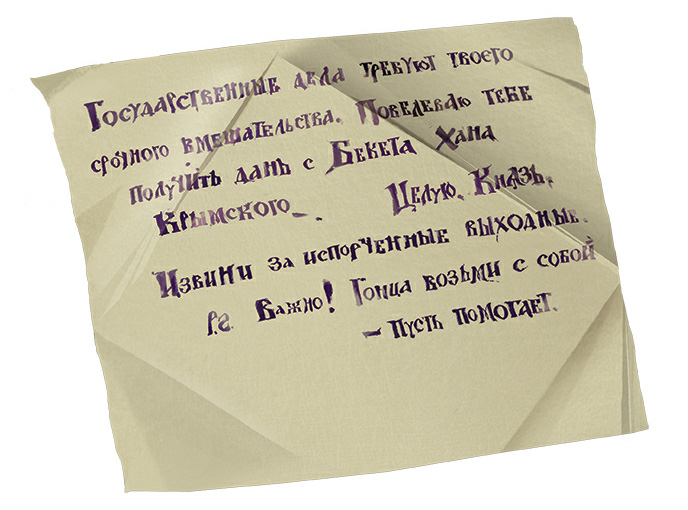 Государственные дела требуют твоего
срочного вмешательства. Повелеваю тебе
получить дань с Бекета Хана
Крымского_. Целую. Князь.
Извини за испорченные выходные.
P.s. Важно! Гонца возьми с собой
– пусть помогает.